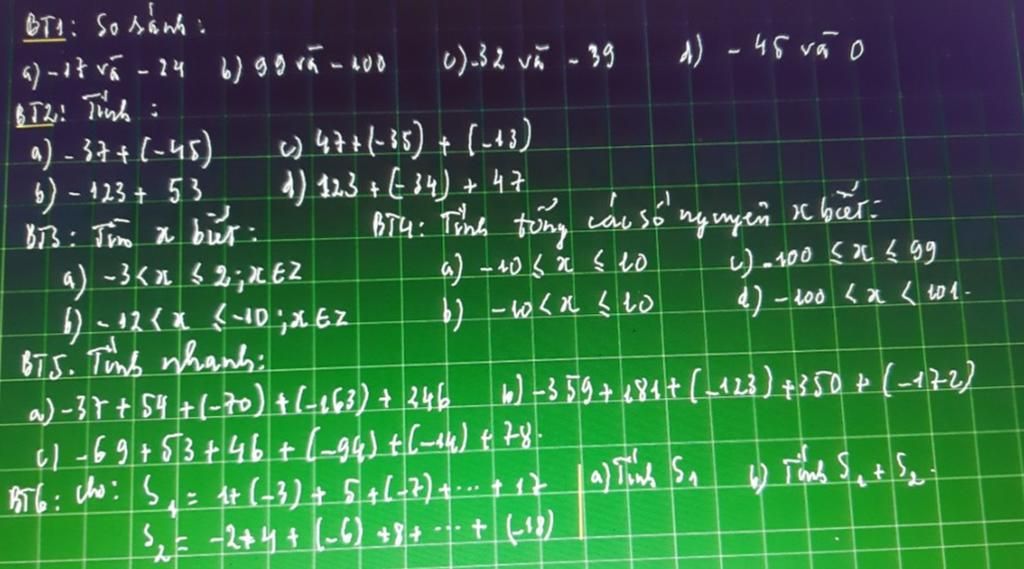 BT1: So sánh:
a) -17 và -24 b) 99 và -100 c) -32 và -39 d) -45 và 0
BT2: Tính:
a) -37 + (-45) c) 47 + (-35) + (-13)
b) -123 + 53 d) 123 + (-34) + 47
BT3: Tìm x biết: BT4: Tính tổng các số nguyên x biết:
a) -3 < x ≤ 2; x ∈ Z a) -10 ≤ x ≤ 10 c) -100 ≤ x ≤ 99
b) -12 < x ≤ -10; x ∈ Z b) -10 < x ≤ 10 d) -100 < x < 101.
BT5. Tính nhanh:
a) -37 + 54 + (-70) + (-163) + 246 b) -359 + 181 + (-123) + 350 + (-172)
c) -69 + 53 + 46 + (-94) + (-14) + 78.
BT6: cho: S1 = 1 + (-3) + 5 + (-7) + ... + 17 a) Tính S1 b) Tính S1 + S2.
S2 = -2 + 4 + (-6) + 8 + ... + (-18)